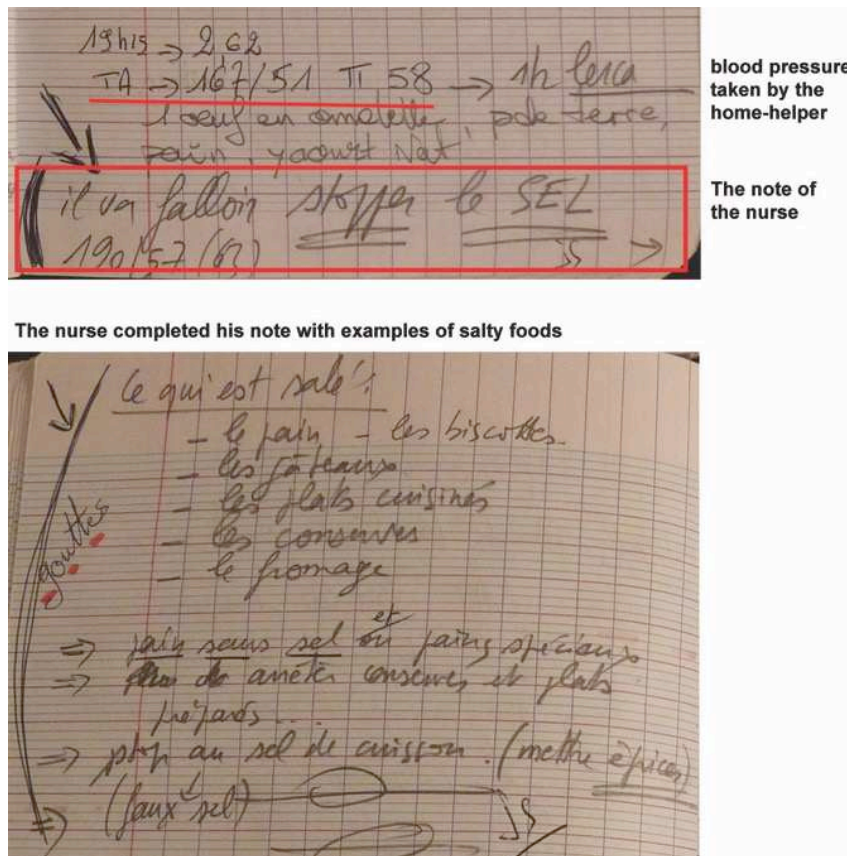 19h15 → 2,62
TA → 167/51 π 58 → 1h Lerca
1 oeuf en omelette, p de terre,
pain, yaourt Nat'
il va falloir stopper le SEL
190/57 (63)
blood pressure
taken by the
home-helper
The note of
the nurse
The nurse completed his note with examples of salty foods
Ce qui est salé :
- le pain - les biscottes
- les gâteaux
- les plats cuisinés
- les conserves
- le fromage
gouttes
⇒ pain sans sel ou et pains spéciaux
⇒ arrêter conserves et plats
préparés...
⇒ stop au sel de cuisson. (mettre épices)
(faux sel)